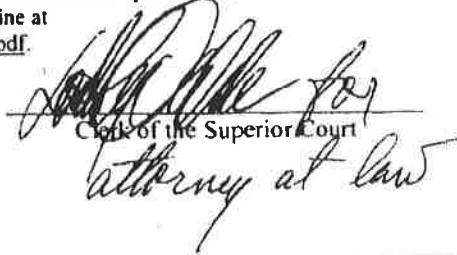 ine at
pdf.
for
Clerk of the Superior Court
attorney at law